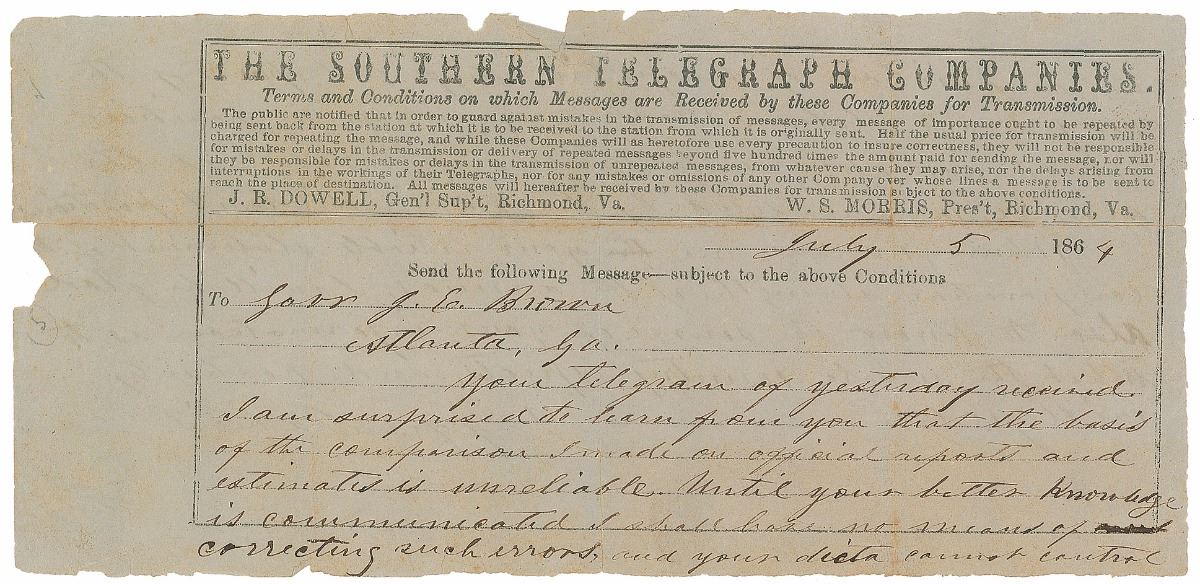 THE SOUTHERN TELEGRAPH COMPANIES.
Terms and Conditions on which Messages are Received by these Companies for Transmission.
The public are notified that in order to guard against mistakes in the transmission of messages, every message of importance ought to be repeated by
being sent back from the station at which it is to be received to the station from which it is originally sent. Half the usual price for transmission will be
charged for repeating the message, and while these Companies will as heretofore use every precaution to insure correctness, they will not be responsible
for mistakes or delays in the transmission or delivery of repeated messages beyond five hundred times the amount paid for sending the message, nor will
they be responsible for mistakes or delays in the transmission of unrepeated messages, from whatever cause they may arise, nor the delays arising from
interruptions in the workings of their Telegraphs, nor for any mistakes or omissions of any other Company over whose lines a message is to be sent to
reach the place of destination. All messages will hereafter be received by these Companies for transmission subject to the above conditions.
J. R. DOWELL, Gen'l Sup't, Richmond, Va. W. S. MORRIS, Pres't, Richmond, Va.
July 5 1864
Send the following Message—subject to the above Conditions
To Govr J. E. Brown
Atlanta, Ga.
Your telegram of yesterday received.
I am surprised to learn from you that the basis
of the comparison I made on official reports and
estimates is unreliable. Until your better knowledge
is communicated I shall have no means of
correcting such errors, and your dicta cannot control